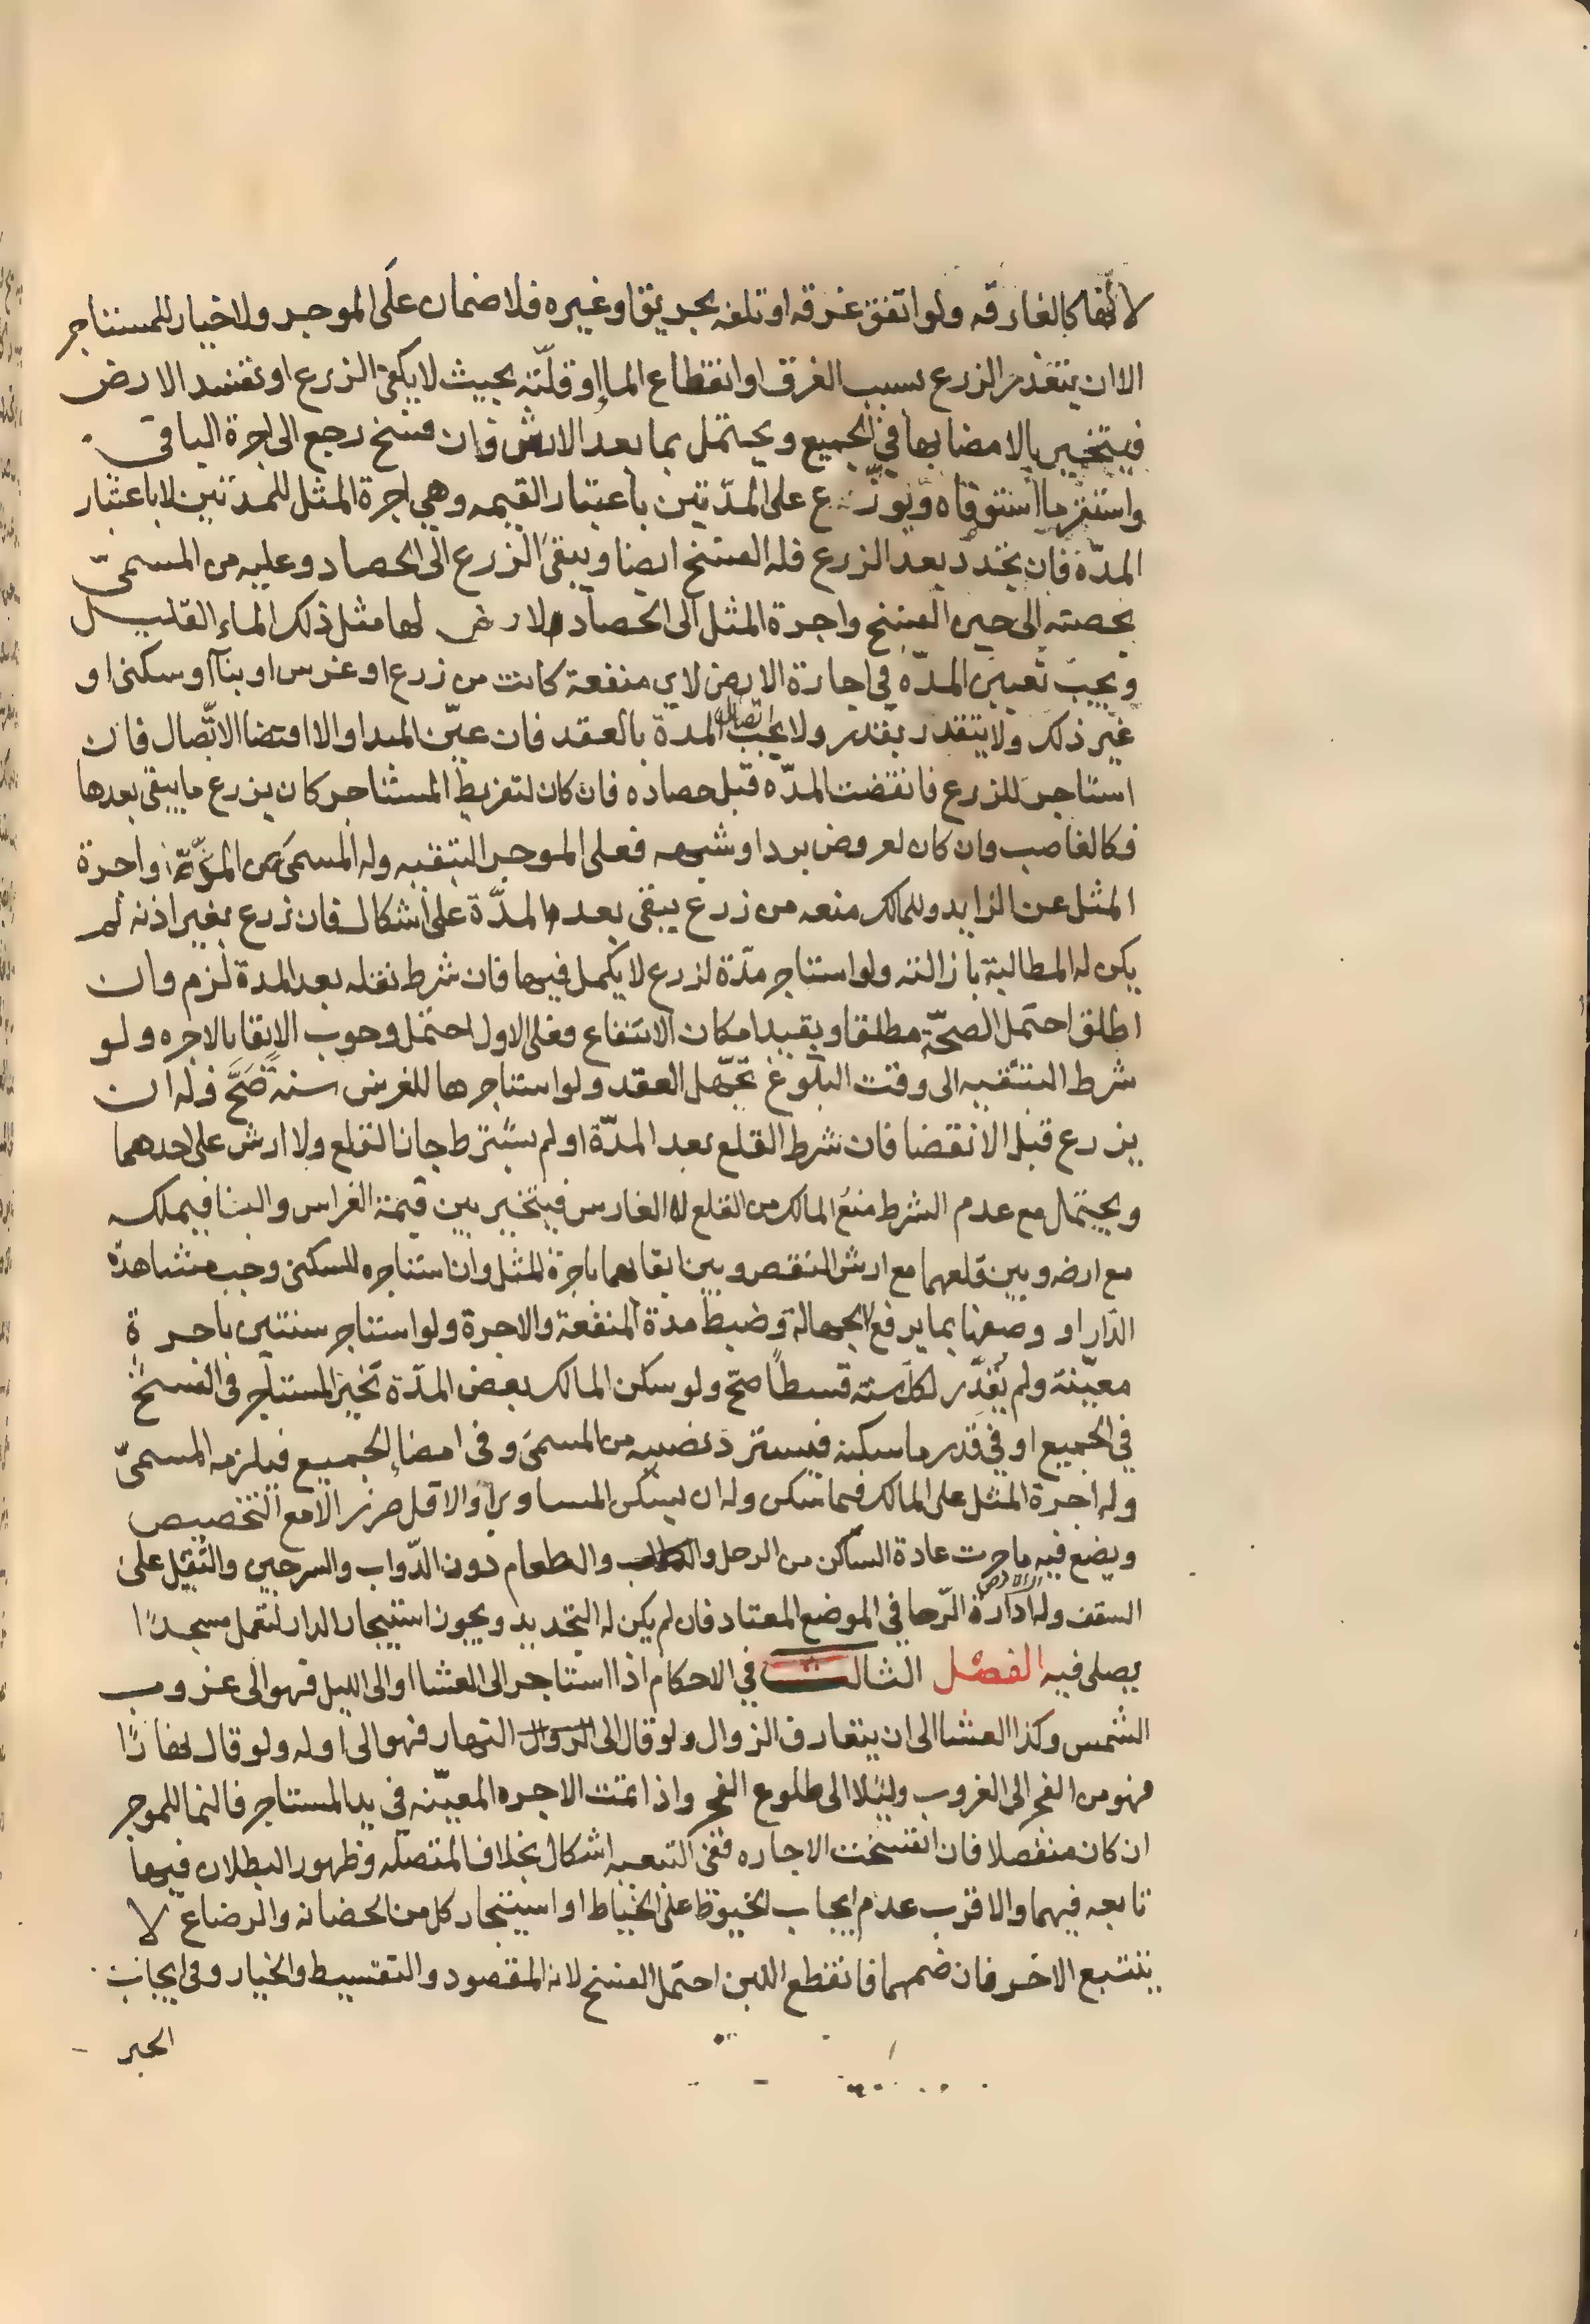 لانها كالغارقه ولو اتفق غرقه او تلفه بحريق او غيره فلا ضمان على الموجر ولا خيار للمستاجر
الا ان يتعذر الزرع بسبب الغرق او انقطاع الماء او قلّته بحيث لا يكفي الزرع او تفسد الارض
فيتخير بالامضا بها في الجميع ويحتمل بما بعد الارش وان فسخ رجع الى اجرة الباقى
واستقر ما استوفاه ويوزّع على المدّتين باعتبار القيمه وهي اجرة المثل للمدتين لا باعتبار
المدّة فان تجدد بعد الزرع فله الفسخ ايضا ويبقى الزرع الى الحصاد وعليه من المسمىّ
بحصته الى حين الفسخ واجرة المثل الى الحصاد لارض لها مثل ذلك الماء القليل
ويجب تعيين المدّه في اجارة الارض لاي منفعة كانت من زرع او غرس او بناء او سكنى او
غير ذلك ولا يتقدر بقدر ولا يجب اتصال المدة بالعقد فان عيّن المبدا والا اقتضا الاتّصال فان
استاجر للزرع فانقضت المدّه قبل حصاده فان كان لتفريط المستاجر كان يزرع ما يبقى بعدها
فكالغاصب وان كان لعروض برد او شبهه فعلى الموجر التبقيه وله المسمى عن المدّة واجرة
المثل عن الزايد وللمالك منعه من زرع يبقى بعد المدّة على اشكال فان زرع بغير اذنه لم
يكن له المطالبة بازالته ولو استاجر مدّة لزرع لا يكمل فيها فان شرط نقله بعد المدة لزم وان
اطلق احتمل الصحّة مطلقا وبقيد امكان الانتفاع وفعلى الاول احتمل وجوب الابقا بالاجره ولو
شرط التبقيه الى وقت البلوغ تجهّل العقد ولو استاجرها للغرس سنة صَحَّ وله ان
يزرع قبل الانقضا فان شرط القلع بعد المدّة او لم يشترط جاز القلع ولا ارش على احدهما
ويحتمل مع عدم الشرط منع المالك من القلع لا الغارس فيتخير بين قيمة الغراس والبنا فيملكه
مع ارضه وبين قلعهما مع ارش النقص وبين ابقايهما باجرة المثل وان استاجره للسكنى وجب مشاهدة
الدّار او وصفها بما يرفع الجهالة وضبط مدة المنفعة والاجرة ولو استاجر سنتين باجرة
معيّنة ولم يُقدّر لكل سنة قسطاً صحّ ولو سكن المالك بعض المدّة تخيّر المستاجر فى الفسخ
في الجميع او في قدر ما سكنه فيسترد نصيبه من المسمى وفى امضاء الجميع فيلزمه المسمىّ
وله اجرة المثل على المالك فيما سكن وله ان يسكن المساوي او الاقل ضررا الا مع التخصيص
ويضع فيه ما جرت عادة الساكن من الرحل والطعام دون الدّواب والسرجين والثقيل على
السقف وله ادارة الرّحا في الموضع المعتاد فان لم يكن له التجديد ويجوز استيجار الدار لتعمل مسجدًا
يصلى فيه الفصل الثالث في الاحكام اذا استاجر الى العشا او الى الليل فهو الى غروب
الشمس وكذا العشا الى ان يتعارف الزوال ولو قال الى النهار فهو الى اوله ولو قال نهارًا
فهو من الفجر الى الغروب وليلا الى طلوع الفجر واذا نمت الاجره المعيّنه في يد المستاجر فالنما للموجر
ان كان منفصلا فان انفسخت الاجاره ففى التبعيه اشكال بخلاف المتصله وظهور البطلان فيها
تابعه فيهما والاقرب عدم ايجاب الخيوط على الخياط او استيجار كل من الحضانه والرضاع لا
يستتبع الاخر فان ضمهما فانقطع اللبن احتمل الفسخ لانه المقصود والتقسيط والخيار وفى ايجاب
الحبر